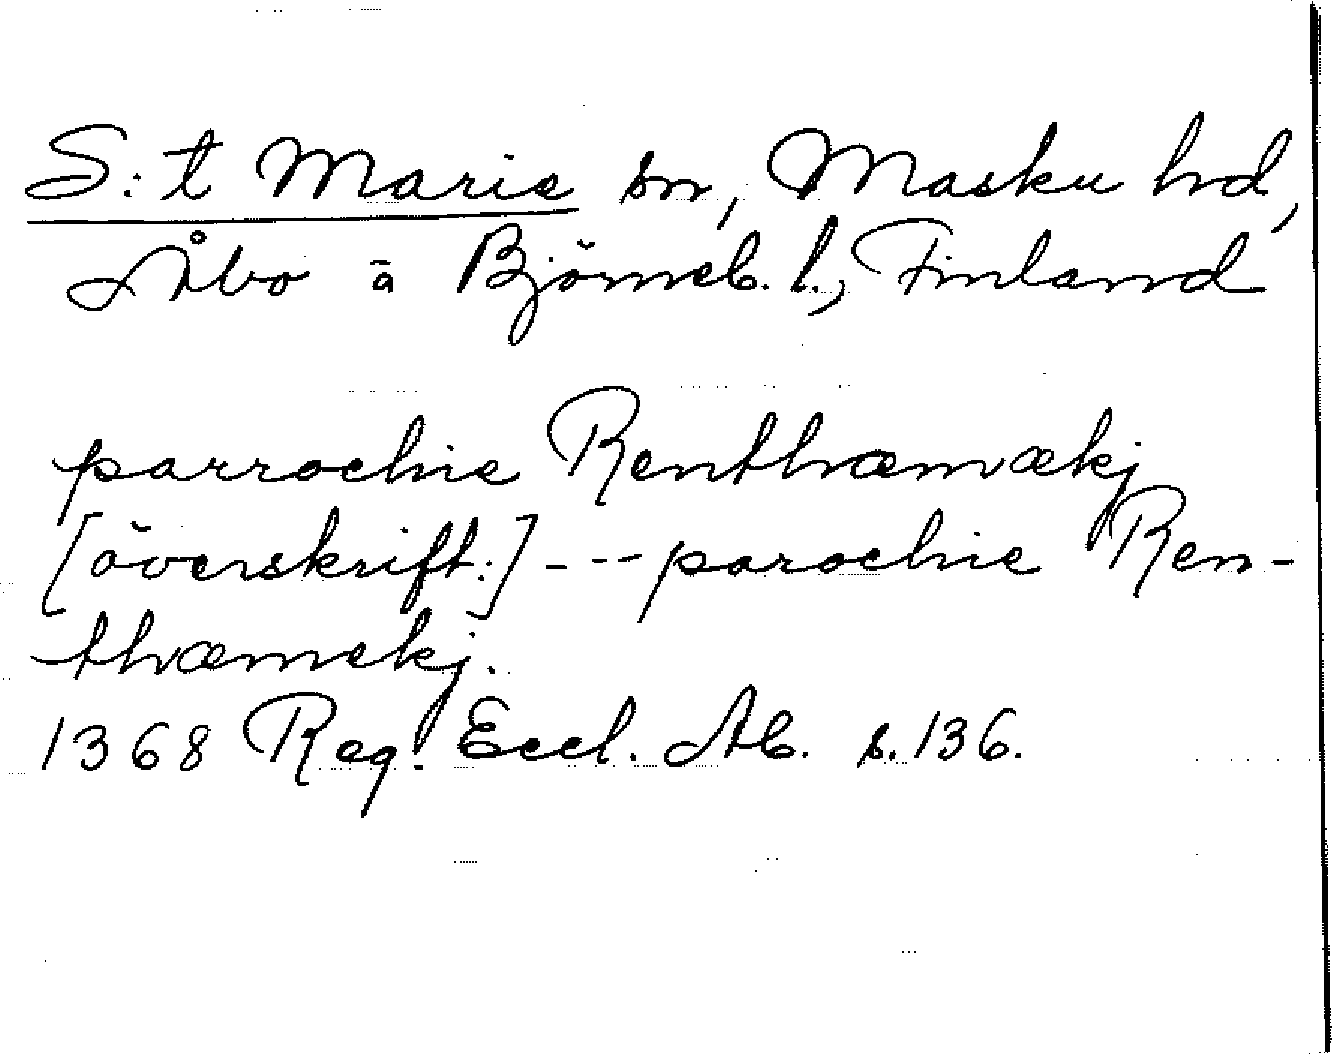 S:t Marie sn, Masku hd,
Åbo o Björneb. l., Finland
parrochie Renthæmækj
[överskrift:] --- parochie Ren-
thæmekj.
1368 Reg. Eccl. Ab. s. 136.